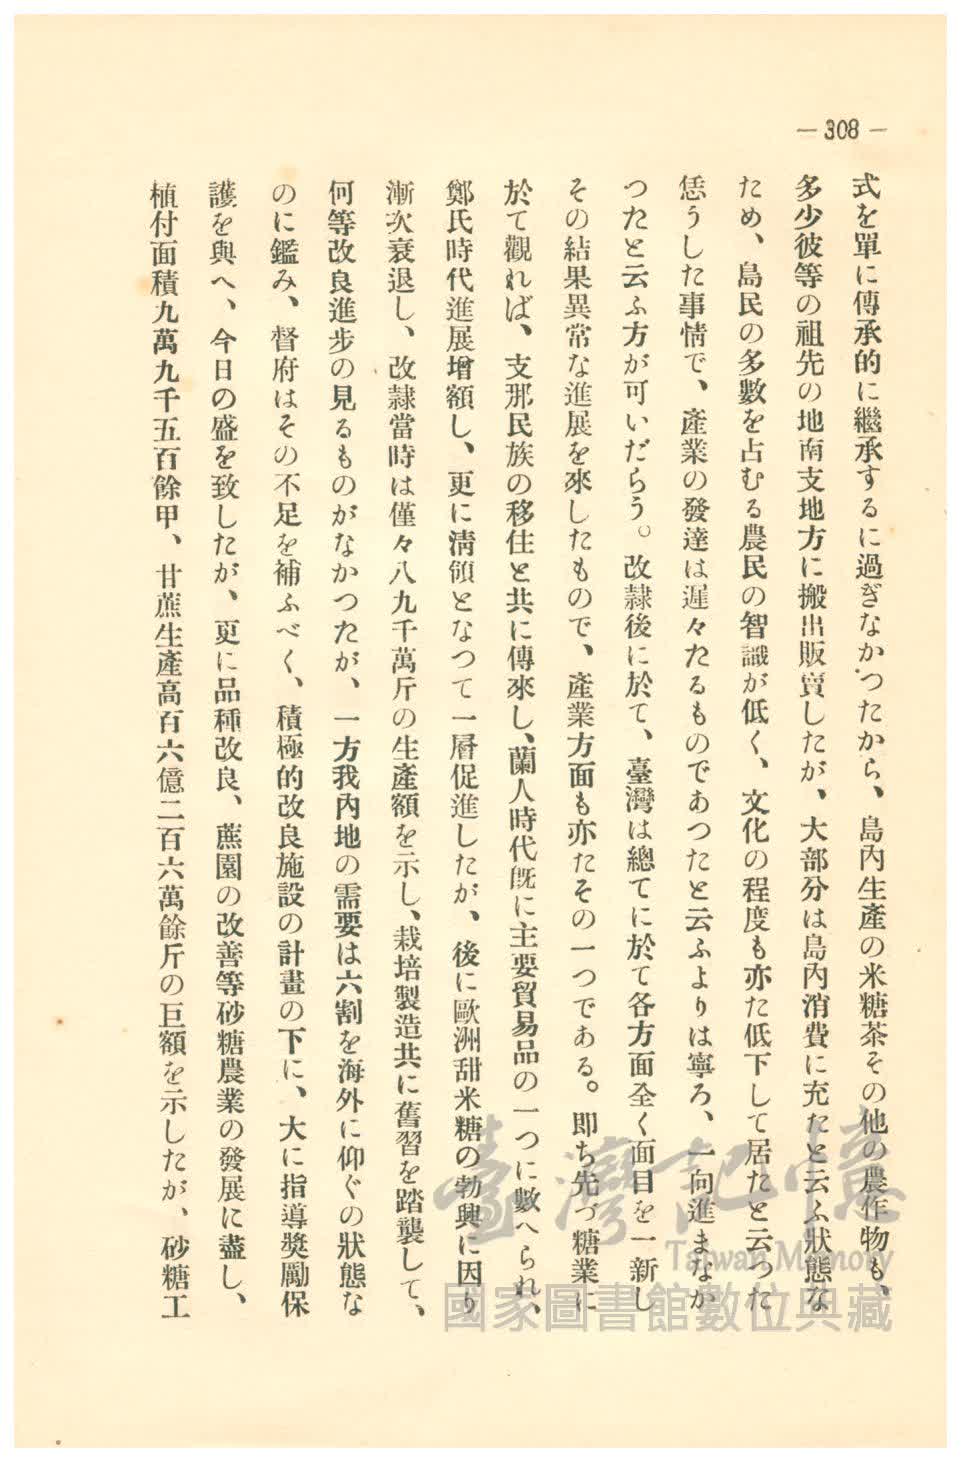 — 308 —
式を單に傳承的に繼承するに過ぎなかつたから、島內生產の米糖茶その他の農作物も、
多少彼等の祖先の地南支地方に搬出販賣したが、大部分は島內消費に充たと云ふ狀態な
ため、島民の多數を占むる農民の智識が低く、文化の程度も亦た低下して居たと云つた
恁うした事情で、產業の發達は遲々たるものであつたと云ふよりは寧ろ、一向進まなか
つたと云ふ方が可いだらう。改隷後に於て、臺灣は總てに於て各方面全く面目を一新し
その結果異常な進展を來したもので、產業方面も亦たその一つである。卽ち先づ糖業に
於て觀れば、支那民族の移住と共に傳來し、蘭人時代旣に主要貿易品の一つに數へられ、
鄭氏時代進展增額し、更に淸領となつて一層促進したが、後に歐洲甜米糖の勃興に因り
漸次衰退し、改隷當時は僅々八九千萬斤の生產額を示し、栽培製造共に舊習を踏襲して、
何等改良進步の見るものがなかつたが、一方我內地の需要は六割を海外に仰ぐの狀態な
のに鑑み、督府はその不足を補ふべく、積極的改良施設の計畫の下に、大に指導獎勵保
護を與へ、今日の盛を致したが、更に品種改良、蔗園の改善等砂糖農業の發展に盡し、
植付面積九萬九千五百餘甲、甘蔗生產高百六億二百六萬餘斤の巨額を示したが、砂糖工
臺灣記憶
Taiwan Memory
國家圖書館數位典藏